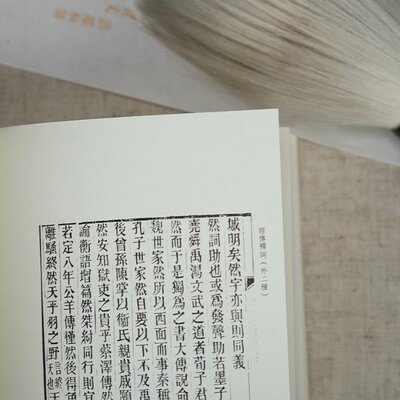 經傳釋詞（外二種）
城明矣然字亦與則同義
然詞助也或為發聲助若墨子
堯舜禹湯文武之道者荀子君
然而于是獨為之書大傳說命
魏世家然所以西面而事秦稱
孔子世家然自要以下不及禹
後曾孫陳掌以衞氏親貴戚願
然安知獄吏之貴乎蔡澤傳然
論衡語增篇然桀紂同行則宜
若定八年公羊傳然後得免
離騷終然夭乎羽之野